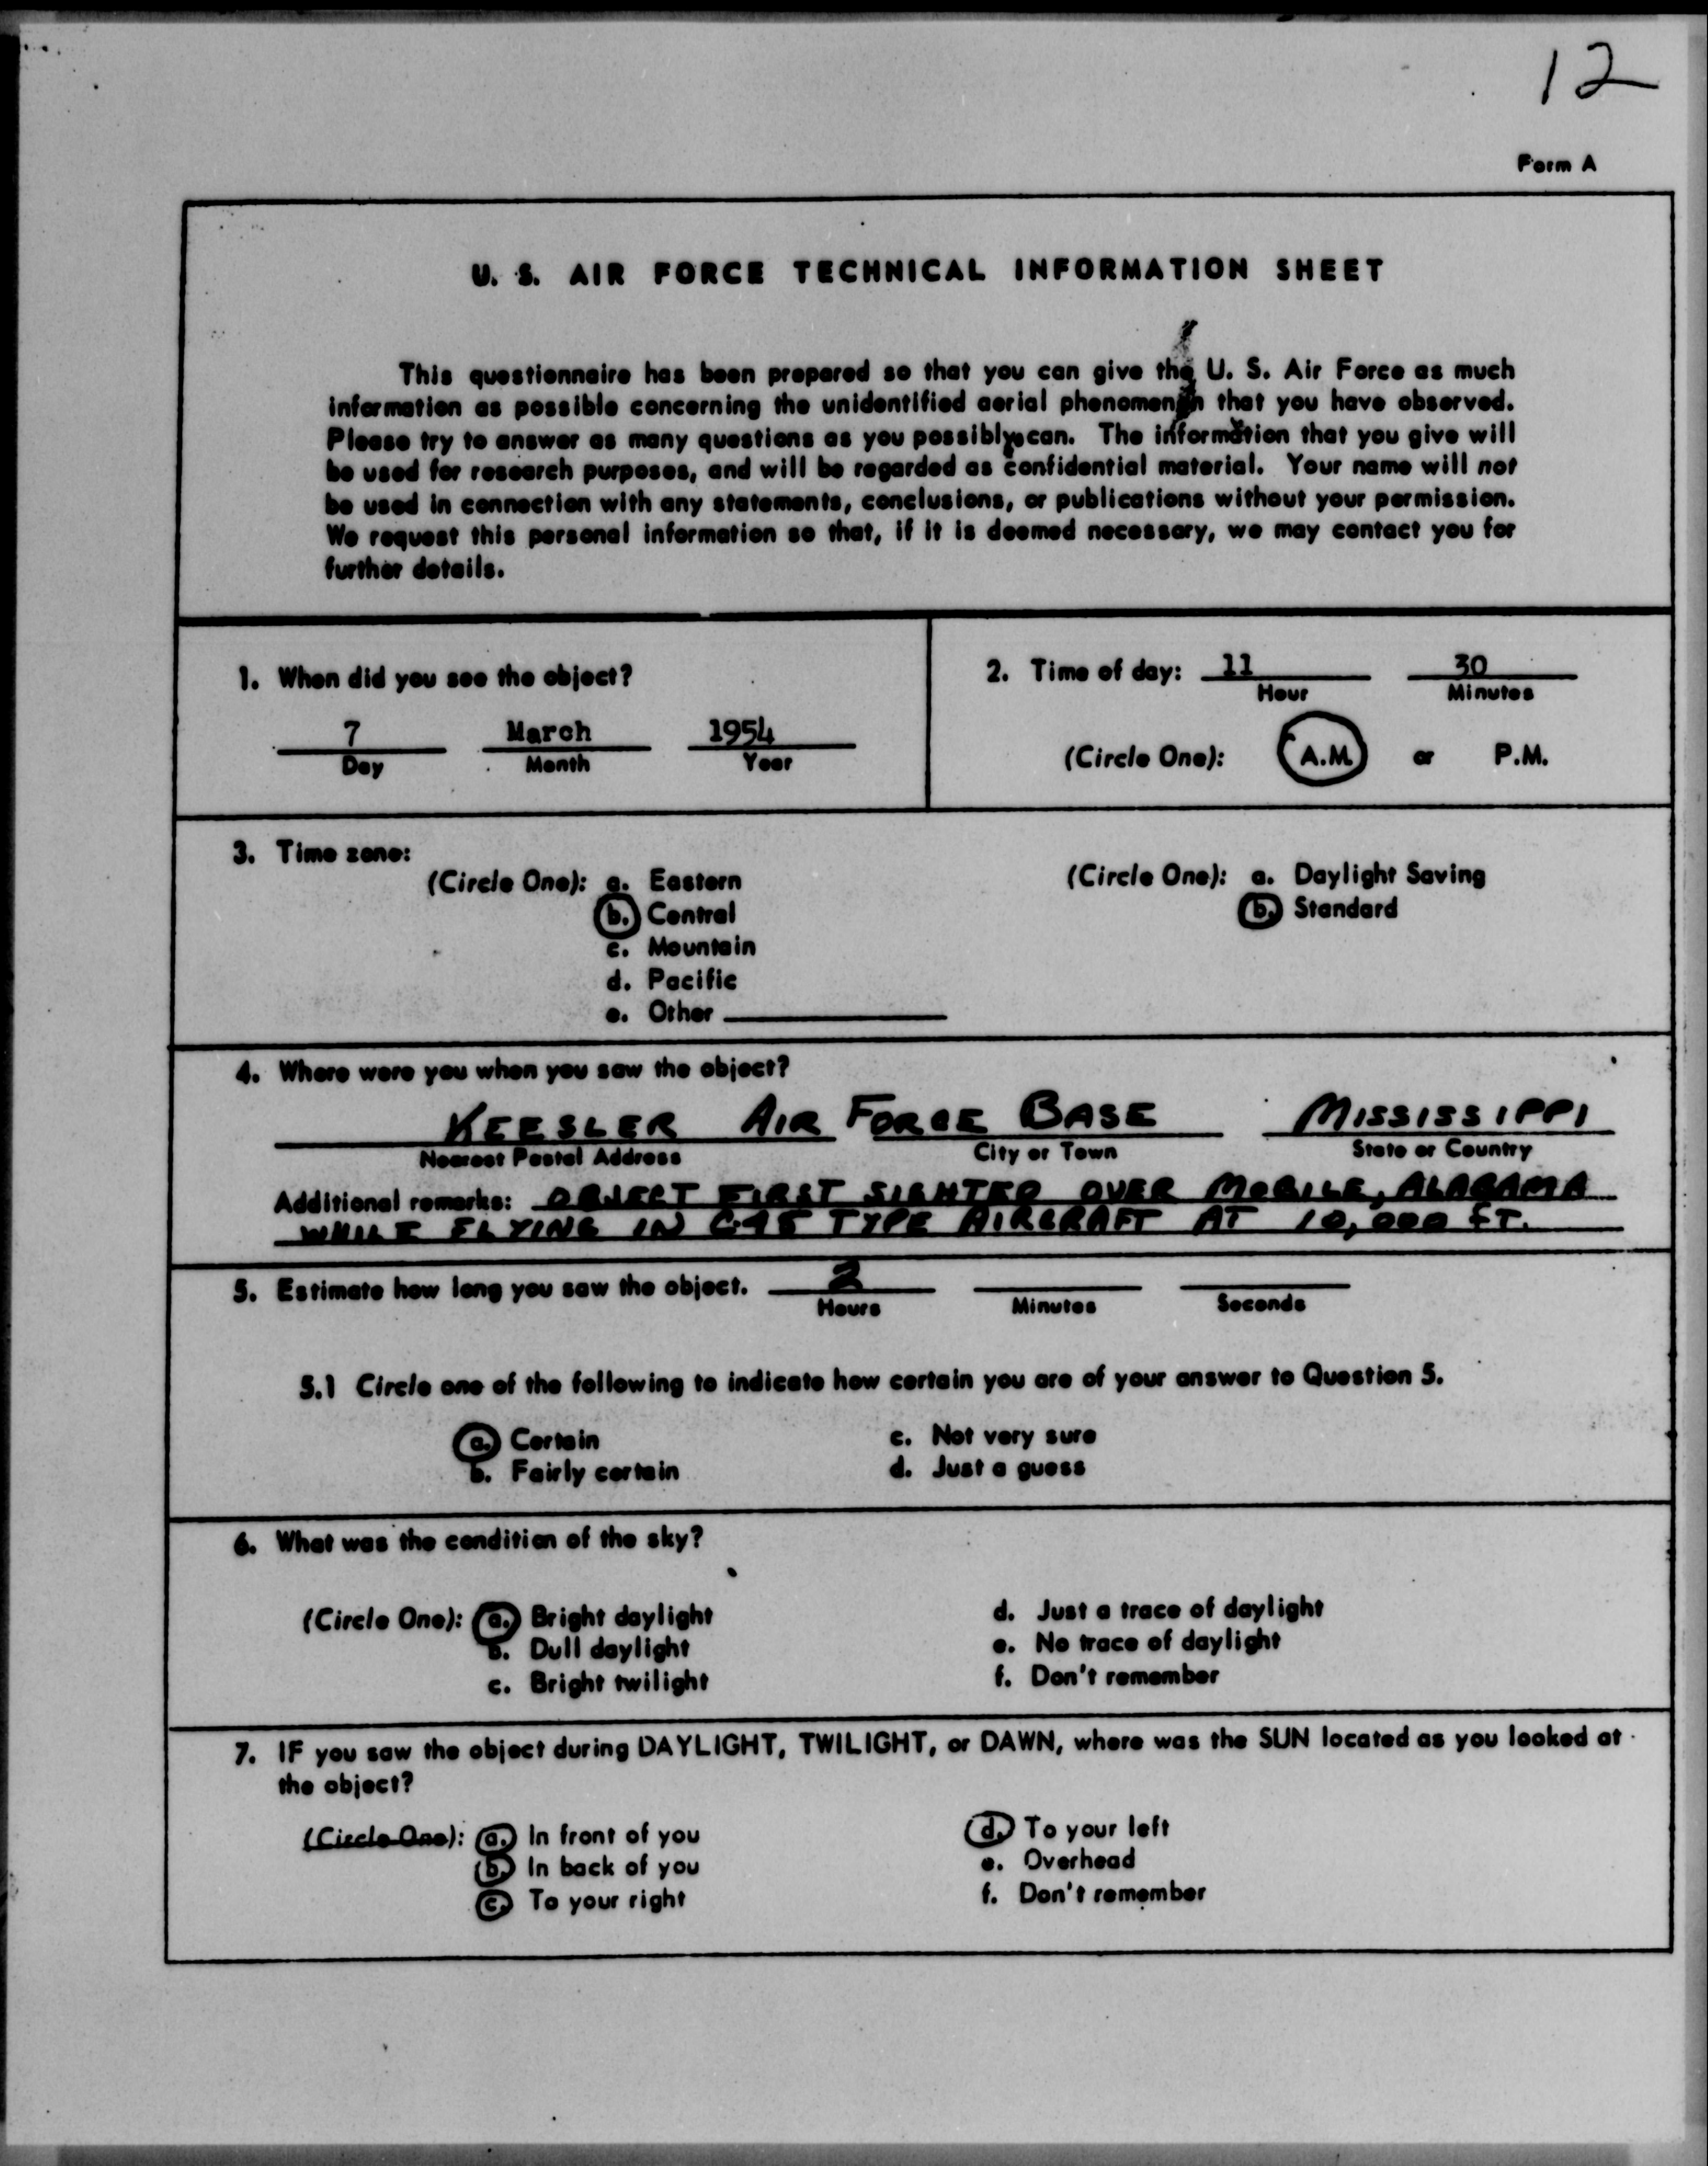 12
Form A
U. S. AIR FORCE TECHNICAL INFORMATION SHEET
This questionnaire has been prepared so that you can give the U. S. Air Force as much
information as possible concerning the unidentified aerial phenomenon that you have observed.
Please try to answer as many questions as you possibly can. The information that you give will
be used for research purposes, and will be regarded as confidential material. Your name will not
be used in connection with any statements, conclusions, or publications without your permission.
We request this personal information so that, if it is deemed necessary, we may contact you for
further details.
1. When did you see the object?
7 March 1954
Day Month Year
2. Time of day: 11 30
Hour Minutes
(Circle One): A.M. or P.M.
3. Time zone:
(Circle One): a. Eastern
b. Central
c. Mountain
d. Pacific
e. Other
(Circle One): a. Daylight Saving
b. Standard
4. Where were you when you saw the object?
KEESLER AIR FORCE BASE MISSISSIPPI
Nearest Postal Address City or Town State or Country
Additional remarks: OBJECT FIRST SIGHTED OVER MOBILE, ALABAMA
WHILE FLYING IN C-45 TYPE AIRCRAFT AT 10,000 FT.
5. Estimate how long you saw the object. 2
Hours Minutes Seconds
5.1 Circle one of the following to indicate how certain you are of your answer to Question 5.
a. Certain
b. Fairly certain
c. Not very sure
d. Just a guess
6. What was the condition of the sky?
(Circle One): a. Bright daylight
b. Dull daylight
c. Bright twilight
d. Just a trace of daylight
e. No trace of daylight
f. Don't remember
7. IF you saw the object during DAYLIGHT, TWILIGHT, or DAWN, where was the SUN located as you looked at
the object?
(Circle One): a. In front of you
b. In back of you
c. To your right
d. To your left
e. Overhead
f. Don't remember